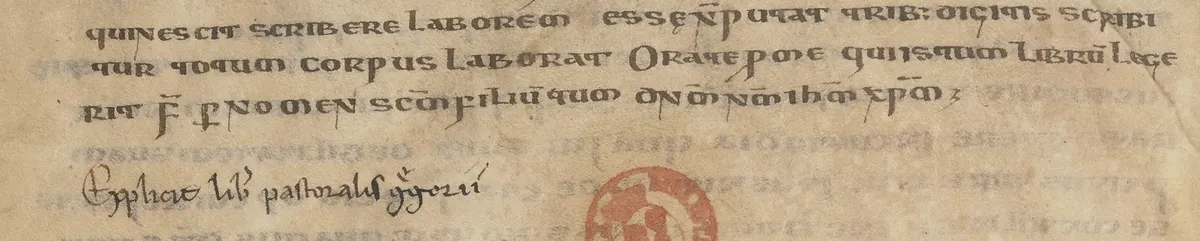 quinescit scribere laborem essę n̄ putat trib: digitis scribi
tur totum corpus laborat Orate p me quiistum librū lege
rit f̄r p nomen scm̄ filiūtum dn̄m nm̄ ihm̄ xpm̄;
Explicit lib pastoralis ggorii